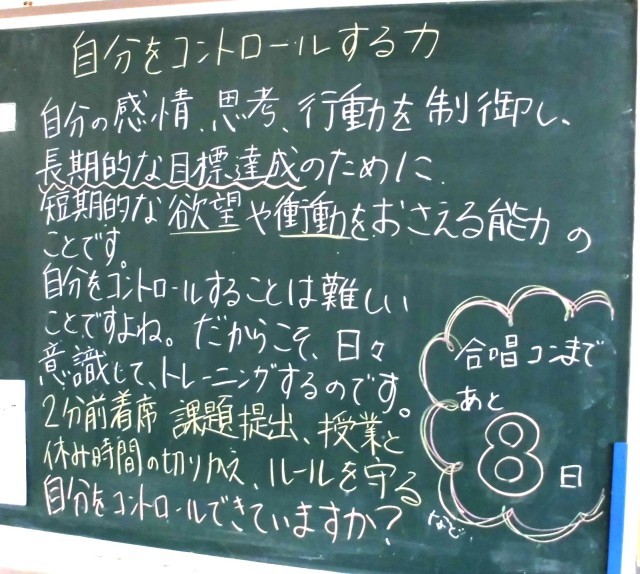 自分をコントロールする力
自分の感情、思考、行動を制御し、
長期的な目標達成のために
短期的な欲望や衝動をおさえる能力の
ことです。
自分をコントロールすることは難しい
ことですよね。だからこそ、日々
意識して、トレーニングするのです。
2分前着席 課題提出、授業と
休み時間の切りかえ、ルールを守る
など
自分をコントロールできていますか?
合唱コンまで
あと
8日